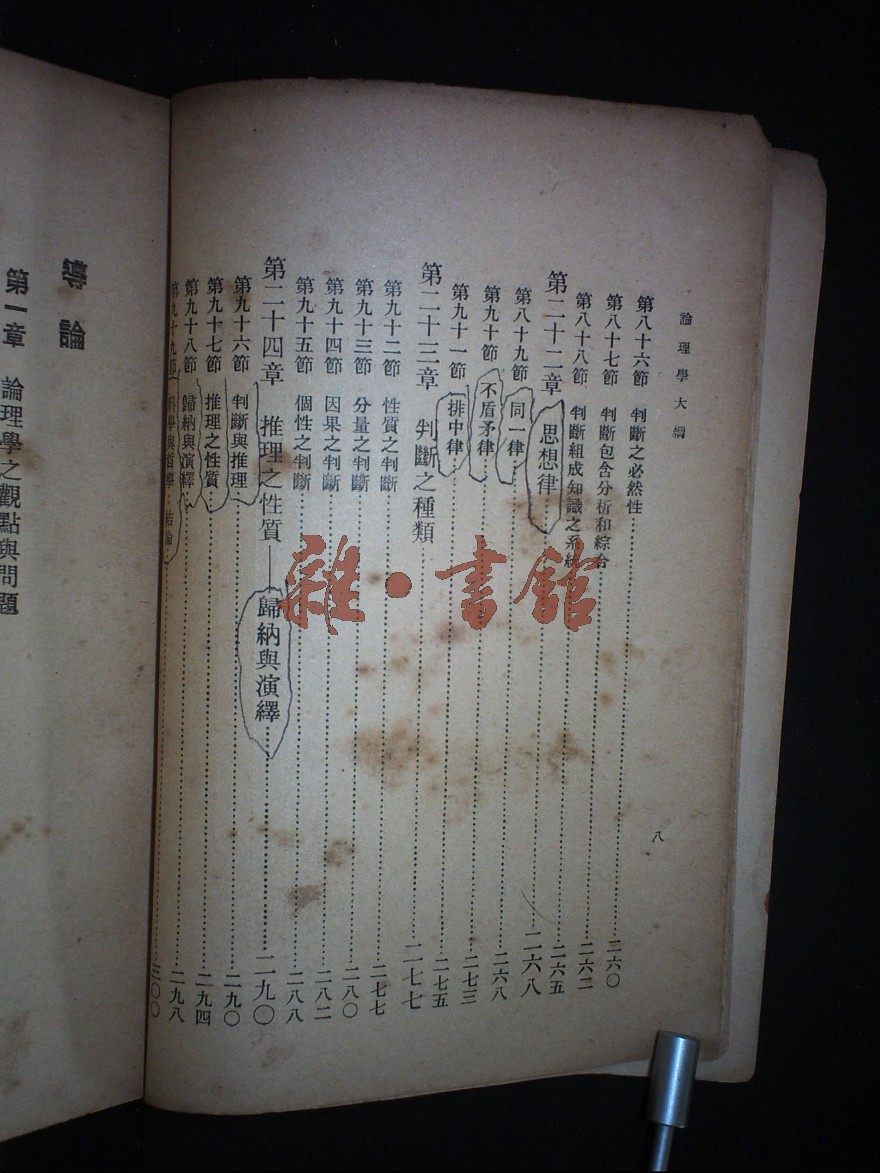 論理學大綱
八
第八十六節 判斷之必然性……二六〇
第八十七節 判斷包含分析和綜合……二六二
第八十八節 判斷組成知識之系統……二六五
第二十二章 思想律……二六八
第八十九節 同一律……二六八
第九十節 不盾矛律……二七三
第九十一節 排中律……二七五
第二十三章 判斷之種類……二七七
第九十二節 性質之判斷……二七七
第九十三節 分量之判斷……二八〇
第九十四節 因果之判斷……二八二
第九十五節 個性之判斷……二八八
第二十四章 推理之性質——歸納與演繹……二九〇
第九十六節 判斷與推理……二九〇
第九十七節 推理之性質……二九四
第九十八節 歸納與演繹……二九八
第九十九節 科學與哲學：結論……三〇〇
導論
第一章 論理學之觀點與問題
雜·書館